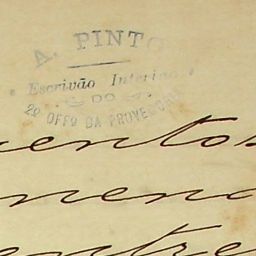 A. PINTO
Escrivão Interino
DO
2º OFFº DA PROVEDORIA
entos
mend
entre